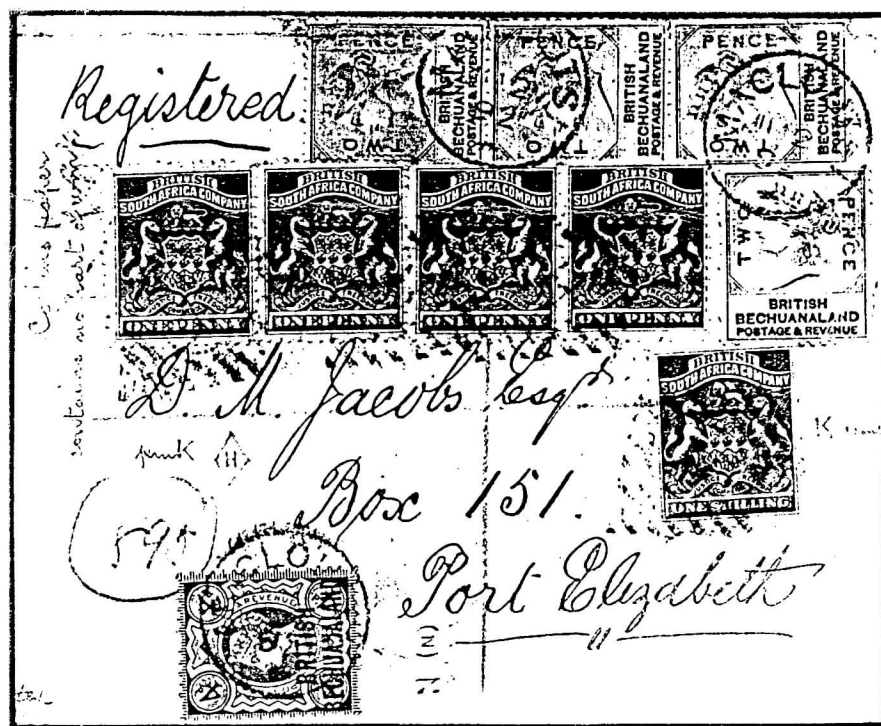 Registered.
PENCE
TWO
BRITISH
BECHUANALAND
POSTAGE & REVENUE
PENCE
TWO
BRITISH
BECHUANALAND
POSTAGE & REVENUE
PENCE
TWO
BRITISH
BECHUANALAND
POSTAGE & REVENUE
BRITISH
SOUTH AFRICA COMPANY
ONE PENNY
BRITISH
SOUTH AFRICA COMPANY
ONE PENNY
BRITISH
SOUTH AFRICA COMPANY
ONE PENNY
BRITISH
SOUTH AFRICA COMPANY
ONE PENNY
TWO PENCE
BRITISH
BECHUANALAND
POSTAGE & REVENUE
contains no part of
D. M. Jacobs Esqr
BRITISH
SOUTH AFRICA COMPANY
ONE SHILLING
Box 151.
595
Port Elizabeth
REVENUE
BRITISH
BECHUANALAND